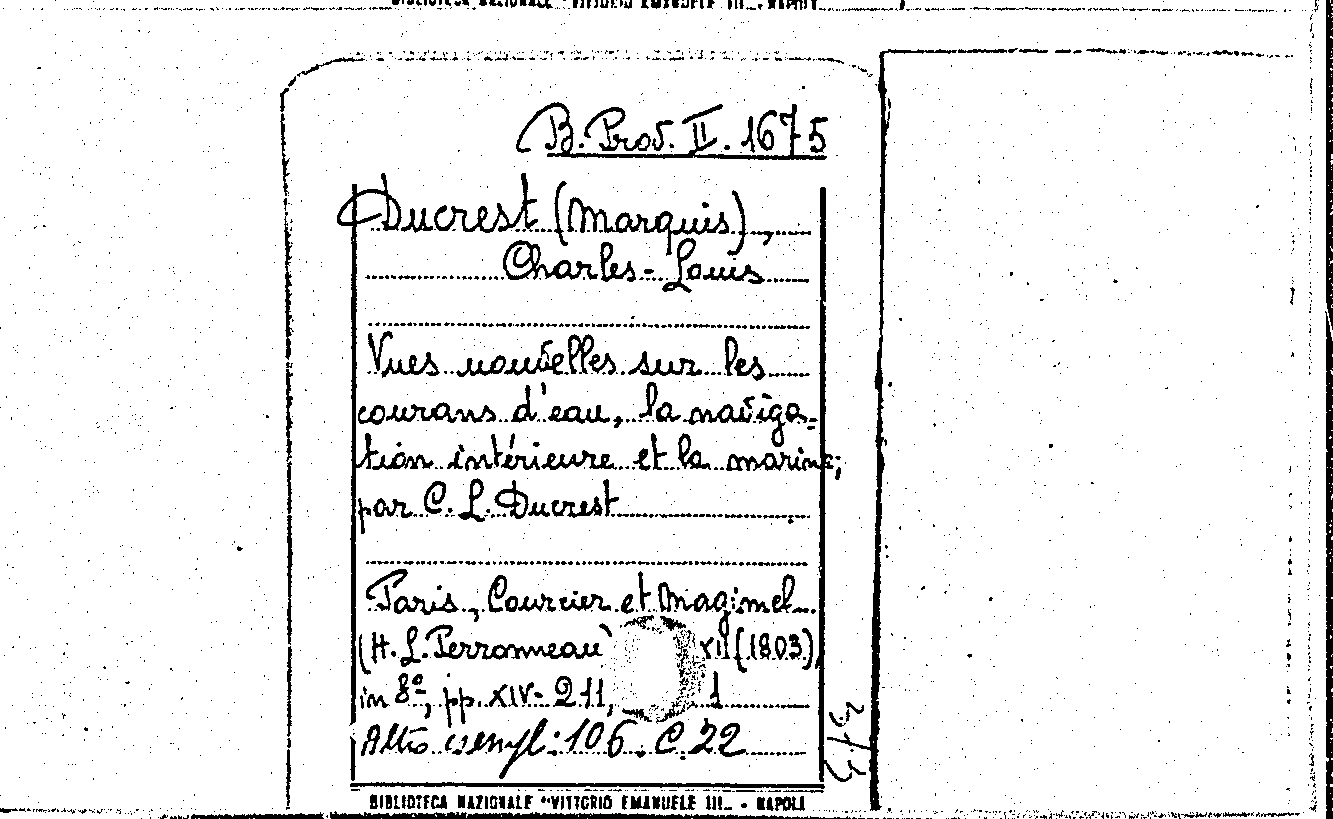 BIBLIOTECA NAZIONALE "VITTORIO EMANUELE III" - NAPOLI
B. Prov. II. 1675
Ducrest (Marquis),
Charles-Louis
Vues nouvelles sur les
courans d'eau, la naviga-
tion intérieure et la marine;
par C. L. Ducrest
Paris, Courcier et Magimel
(H. L. Perronneau) XII (1803),
in 8º, pp. XIV-211, 1
Altro esempl: 106. C. 22
BIBLIOTECA NAZIONALE "VITTORIO EMANUELE III" - NAPOLI